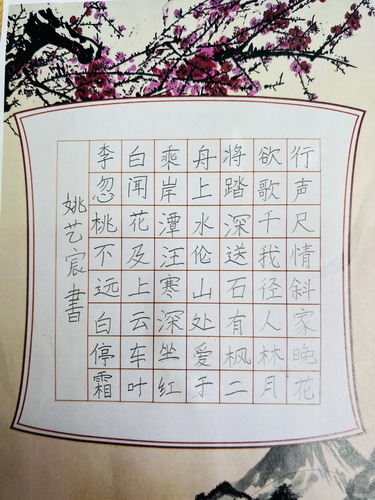 李白乘舟将欲行
忽闻岸上踏歌声
桃花潭水深千尺
不及汪伦送我情
远上寒山石径斜
白云深处有人家
停车坐爱枫林晚
霜叶红于二月花
姚艺宸書